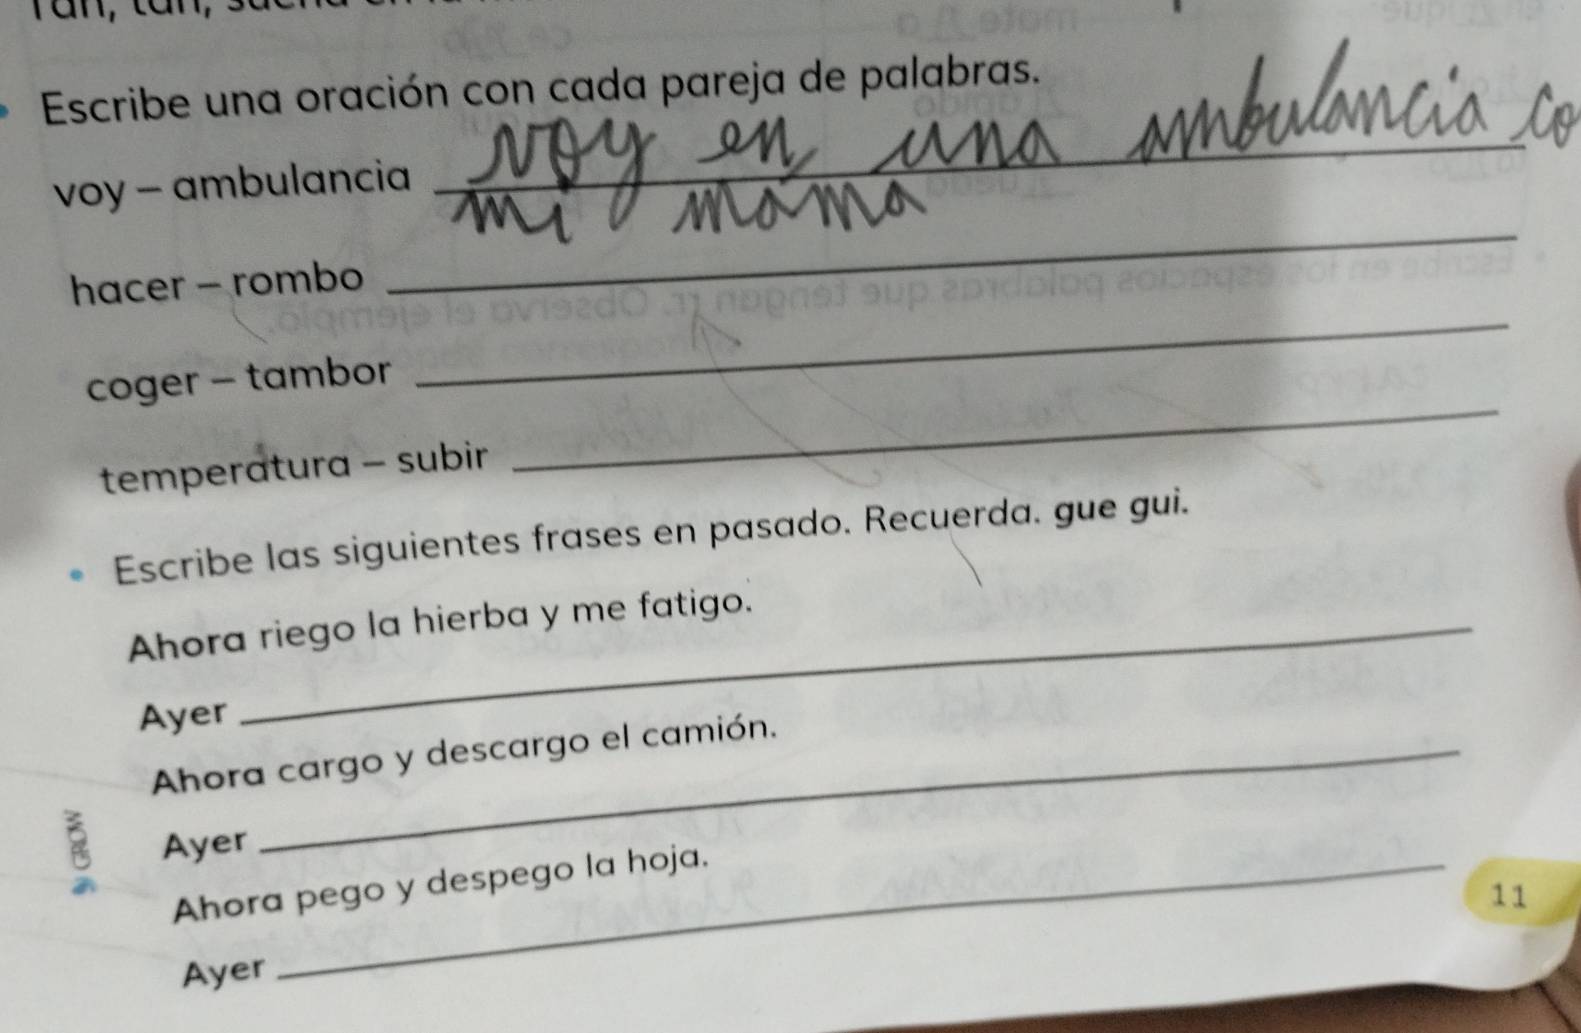 Escribe una oración con cada pareja de palabras.
voy - ambulancia voy en una ambulancia co
mi mama
hacer - rombo
coger - tambor
temperatura - subir
Escribe las siguientes frases en pasado. Recuerda. gue gui.
Ahora riego la hierba y me fatigo.
Ayer
Ahora cargo y descargo el camión.
Ayer
Ahora pego y despego la hoja.
Ayer
GROW
11